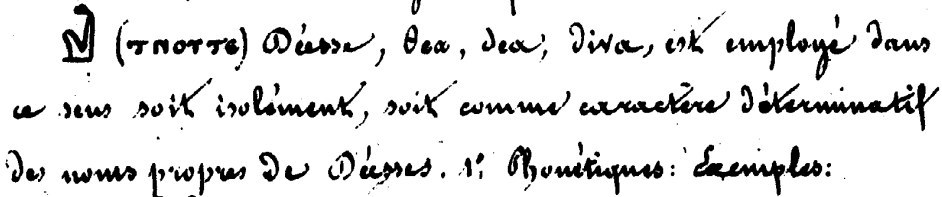 (ⲧⲛⲟⲩⲧⲉ) Déesse, θεα, dea, diva, est employé dans
ce sens soit isolément, soit comme caractère déterminatif
des noms propres de Déesses. 1º. Phonétiques: Exemples: